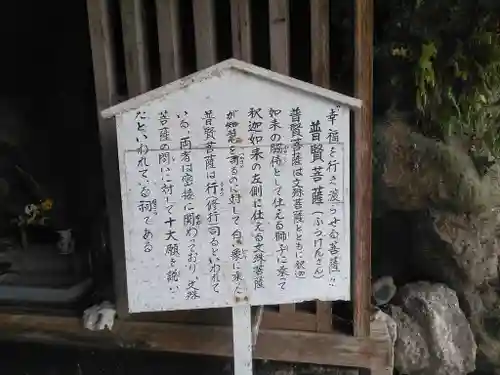 "幸福を行き渡らせる菩薩"
普賢菩薩(ふうげんさん)
普賢菩薩は文殊菩薩とともに釈迦
如来の脇侍として仕える獅子に乗って
釈迦如来の左側に仕える文殊菩薩
が知恵を司るのに対して白い象に乗た
普賢菩薩は行(修行)司るといわれて
いる、両者は密接に関わっており文殊
菩薩の問いに対して十大願を説い
たといわれている祠である